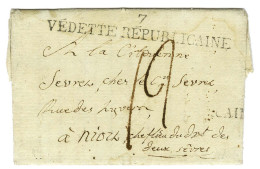 7
VEDETTE RÉPUBLICAINE
A la Citoyenne
Sevres, chez le Cn Sevre,
Rue des
à Niort, chef lieu du Dt des
deux sèvres
19